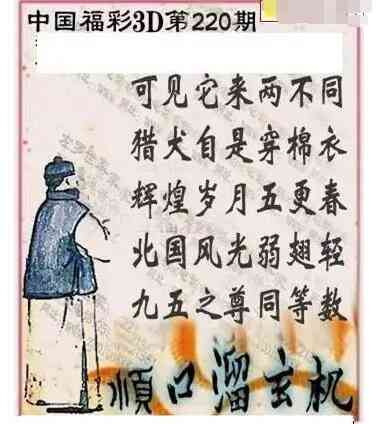 中国福彩3D第220期
可见它来两不同
猎犬自是穿棉衣
辉煌岁月五更春
北国风光弱翅轻
九五之尊同等数
顺口溜玄机